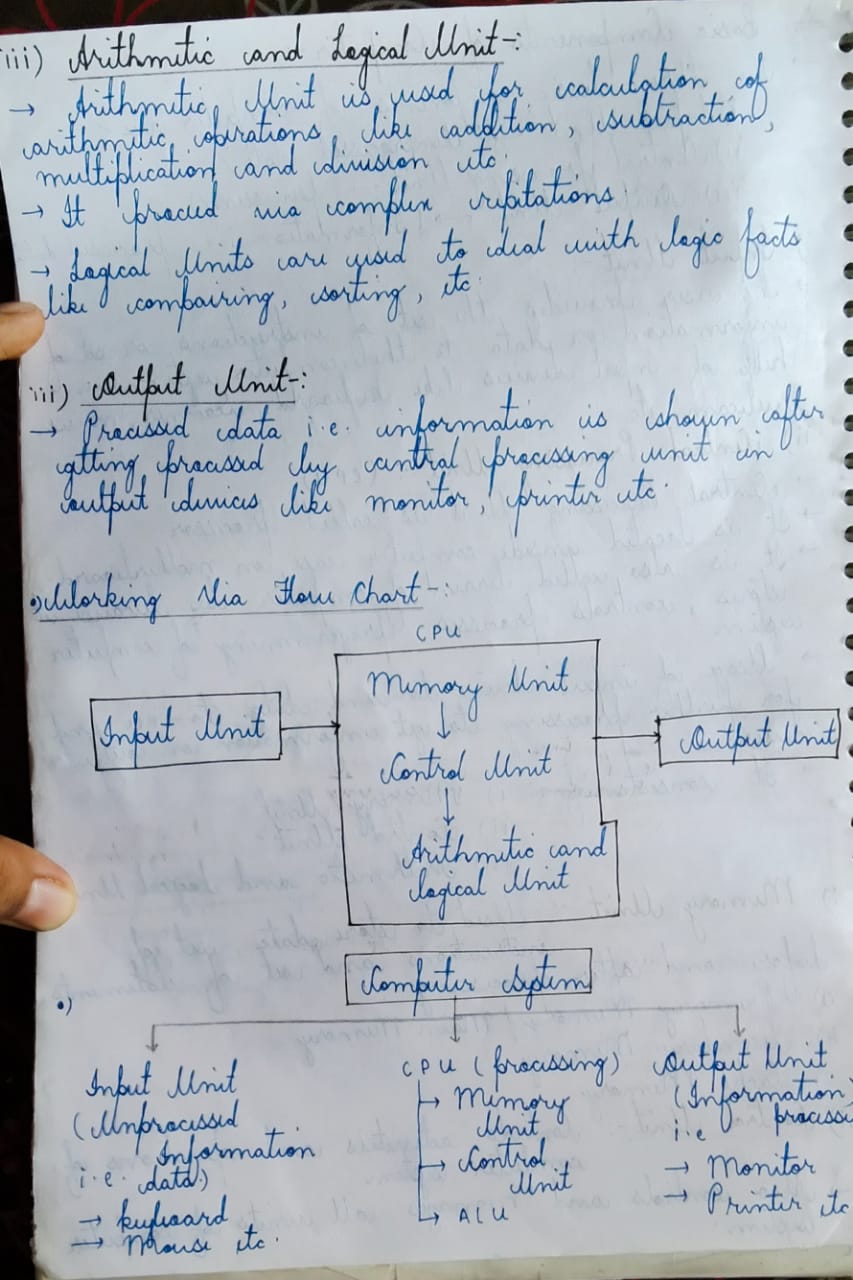 iii) Arithmetic and Logical Unit-:
→ Arithmetic Unit is used for calculation of
arithmetic operations, like addition, subtraction,
multiplication and division etc.
→ It proceed via complex repitations.
→ Logical Units are used to deal with logic facts
like compairing, sorting, etc.
iii) Output Unit-:
→ Processed data i.e. information is shown after
getting processed by central processing unit in
output devices like monitor, printer etc.
•) Working Via Flow Chart-:
CPU
Memory Unit
Input Unit
Output Unit
Control Unit
Arithmetic and
Logical Unit
Computer System
•)
Input Unit
(Unprocessed
Information
i.e. data)
→ keyboard
→ Mouse etc.
CPU (processing)
→ Memory
Unit
→ Control
Unit
→ ALU
Output Unit
(Information)
i.e. processe
→ Monitor
→ Printer etc